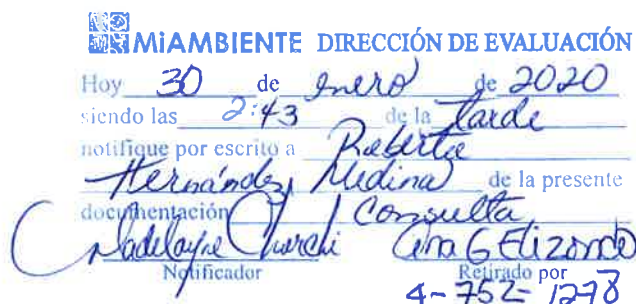 MiAMBIENTE DIRECCIÓN DE EVALUACIÓN
Hoy 30 de Enero de 2020
siendo las 2:43 de la tarde
notifique por escrito a Roberto
Hernández Medina de la presente
documentación Consulta
Ana G Elizondo
Notificador Retirado por
4-752-1278